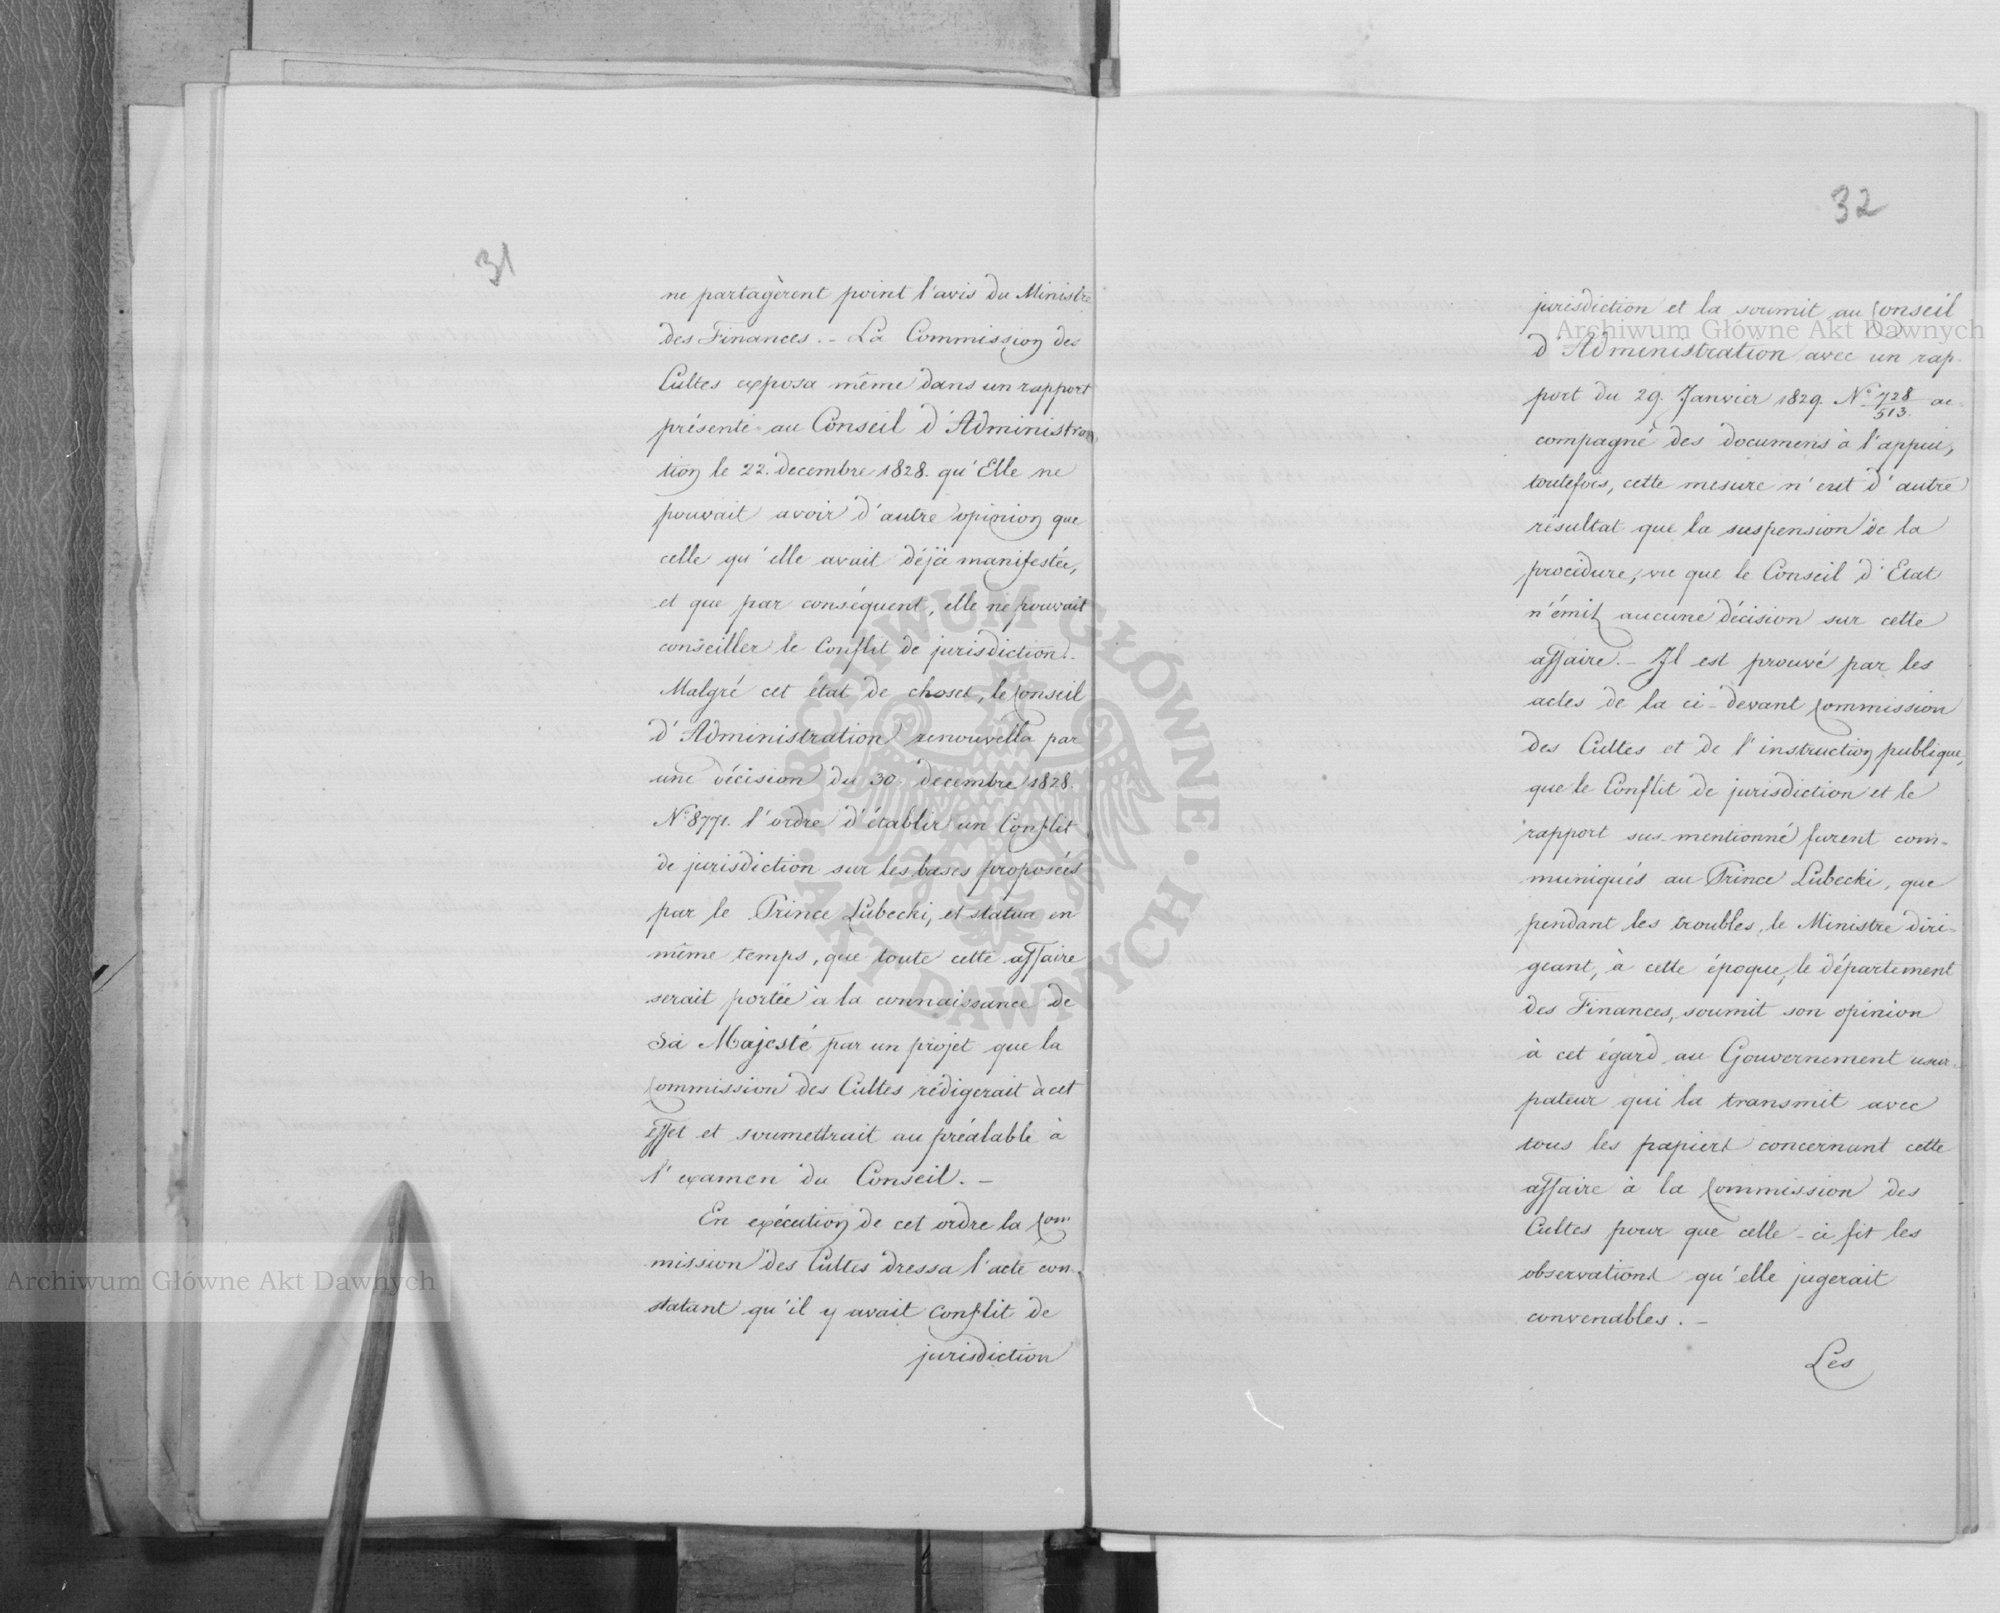 31
ne partagèrent point l'avis du Ministre
des Finances. - La Commission des
Cultes exposa même dans un rapport
présenté au Conseil d'Administra
tion le 22. decembre 1828. qu'Elle ne
pouvait avoir d'autre opinion que
celle qu'elle avait déjà manifestée,
et que par conséquent, elle ne pouvait
conseiller le Conflit de jurisdiction.
Malgré cet état de choses, le Conseil
d'Administration renouvella par
une décision du 30. decembre 1828.
N° 8771. l'ordre d'établir un Conflit
de jurisdiction sur les bases proposées
par le Prince Lubecki, et statua en
même temps, que toute cette affaire
serait portée à la connaissance de
Sa Majesté par un projet que la
Commission des Cultes rédigerait à cet
effet et soumettrait au préalable à
l'examen du Conseil. -
En exécution de cet ordre la Com
mission des Cultes dressa l'acte con-
statant qu'il y avait Conflit de
jurisdiction
32
jurisdiction et la soumit au Conseil
d'Administration avec un rap-
port du 29. Janvier 1829. N° 728/513. ac
compagné des documens à l'appui,
toutefois, cette mesure n'eut d'autre
résultat que la suspension de la
procédure, vu que le Conseil d'Etat
n'émit aucune décision sur cette
affaire. - Il est prouvé par les
actes de la ci-devant Commission
des Cultes et de l'instruction publique,
que le Conflit de jurisdiction et le
rapport sus-mentionné furent com-
muniqués au Prince Lubecki, que
pendant les troubles, le Ministre diri-
geant, à cette époque, le département
des Finances, soumit son opinion
à cet égard au Gouvernement usur-
pateur qui la transmit avec
tous les papiers concernant cette
affaire à la Commission des
Cultes pour que celle-ci fit les
observations qu'elle jugerait
convenables. -
Les
Archiwum Główne Akt Dawnych
Archiwum Główne Akt Dawnych
ARCHIWUM GŁÓWNE · AKT DAWNYCH ·